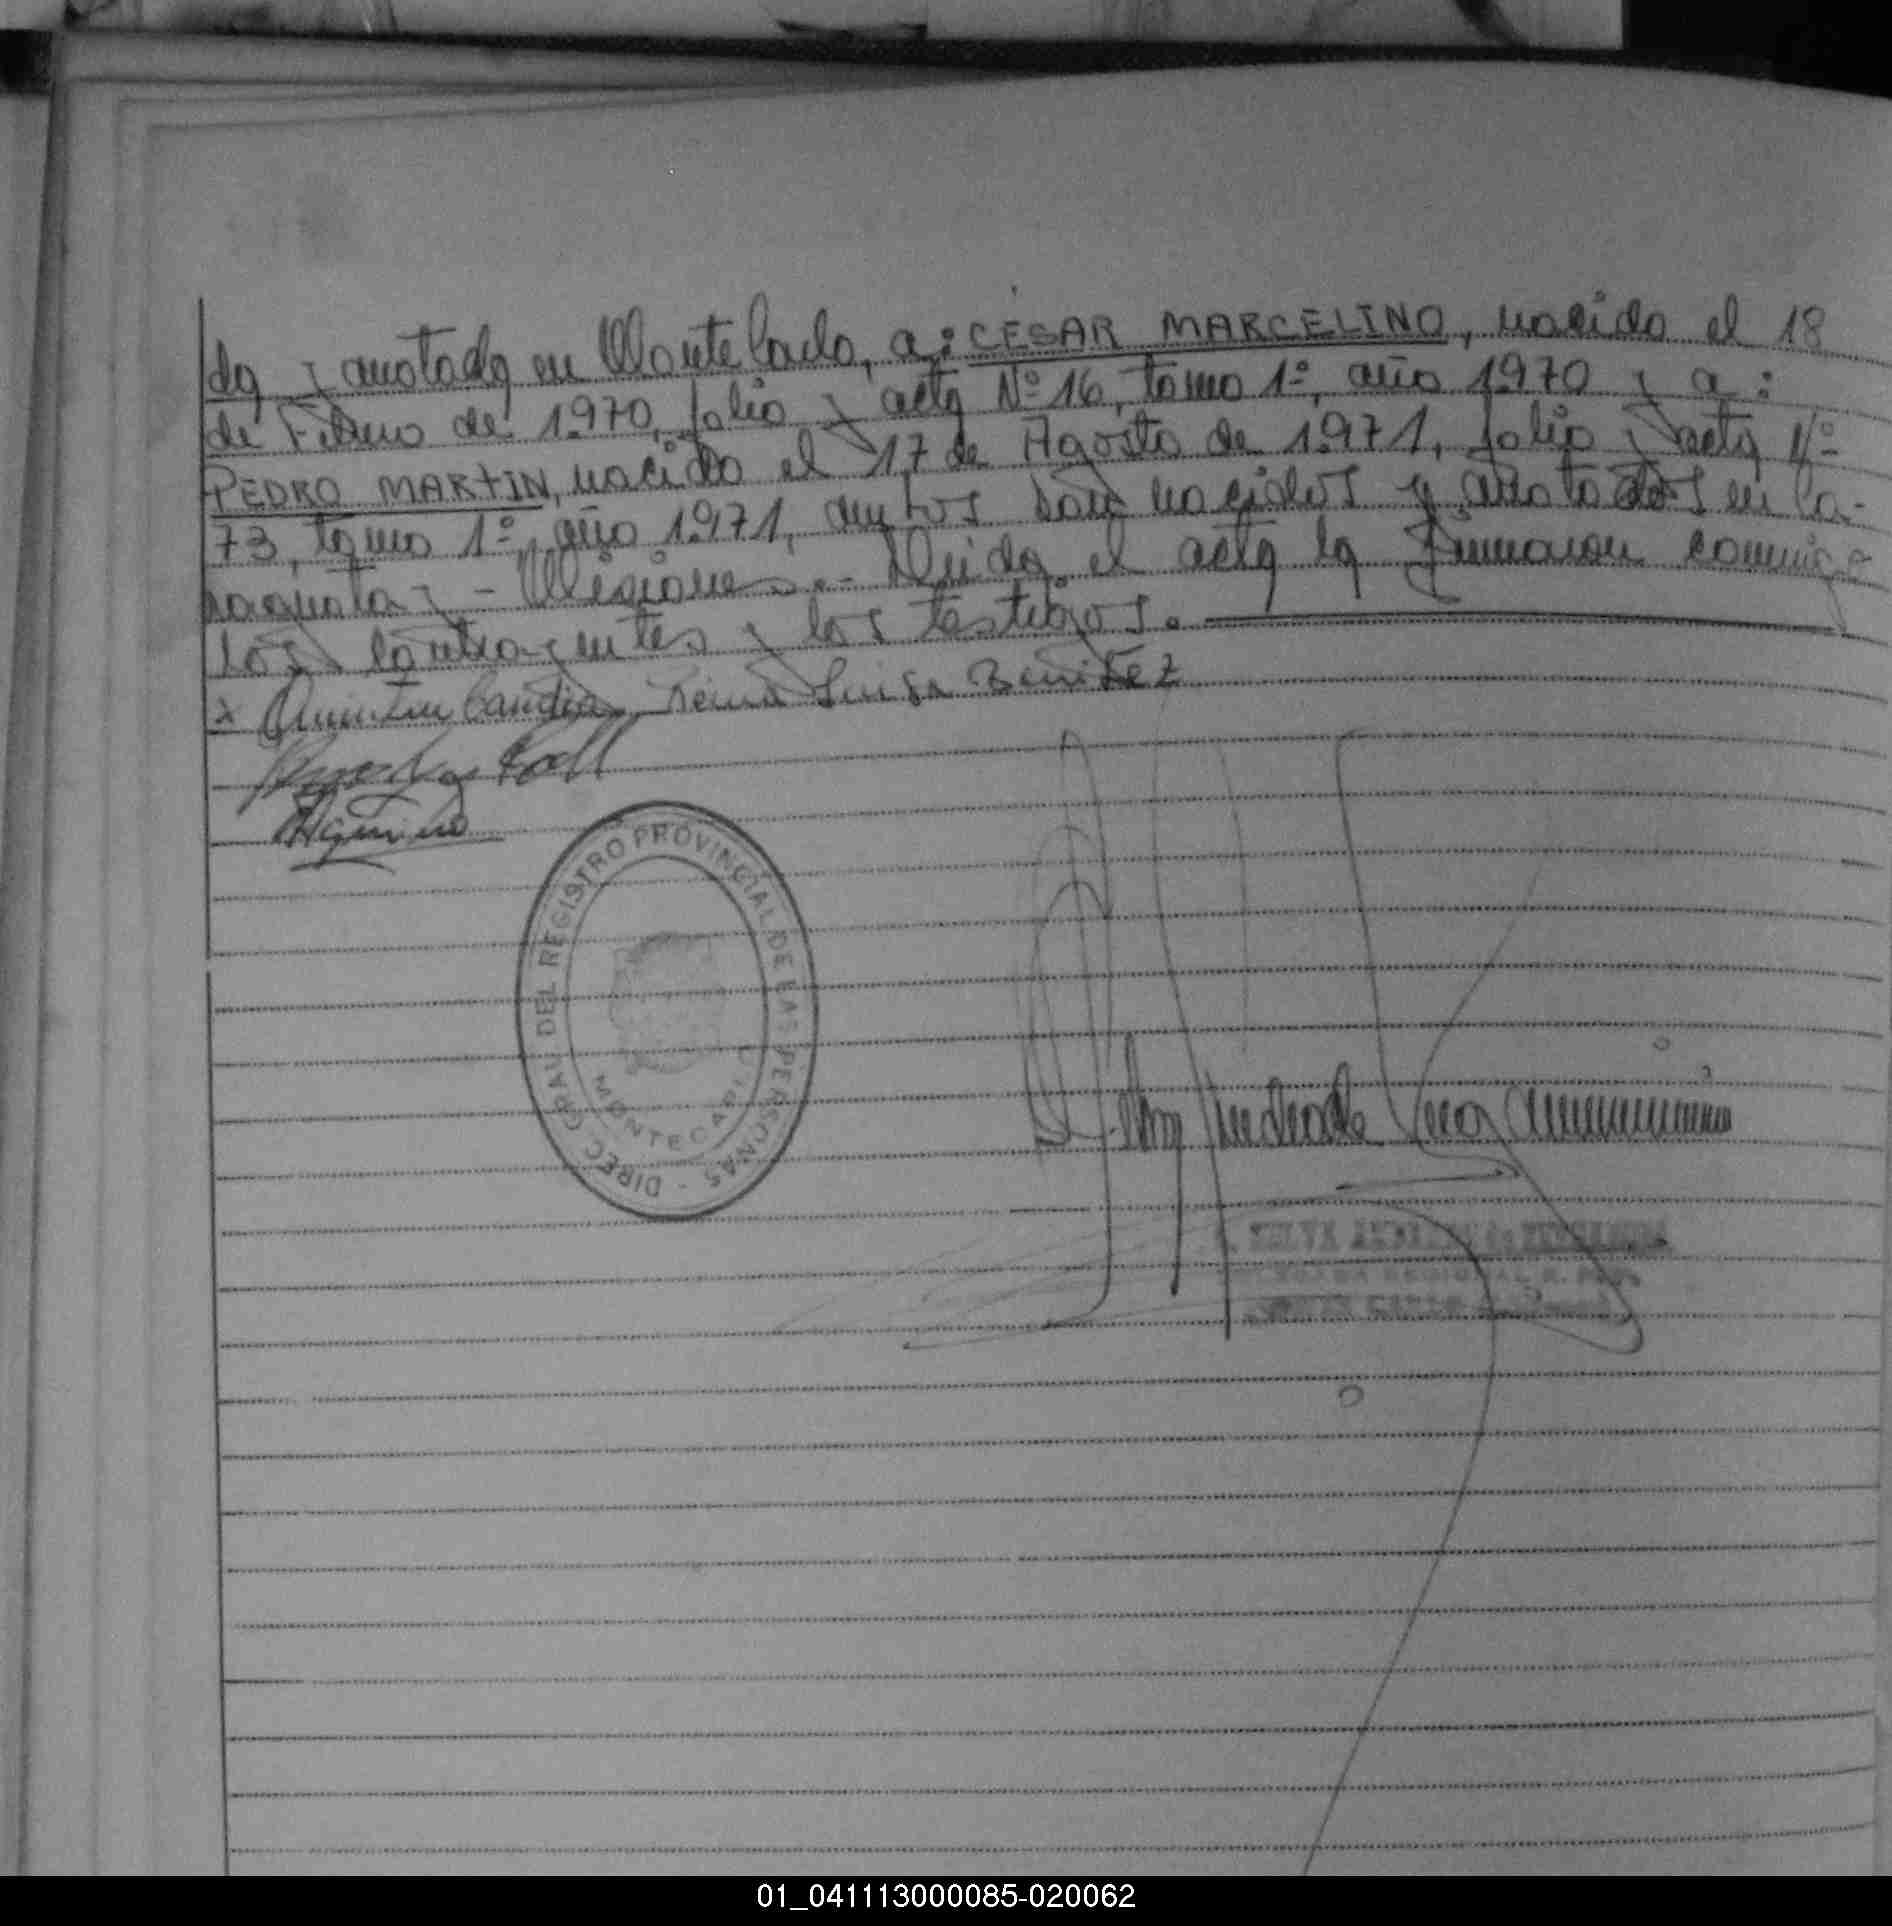 da y anotada en Montecarlo, a: CESAR MARCELINO, nacido el 18
de Febrero de 1.970, folio y acta Nº 16, tomo 1º, año 1.970 y a:
PEDRO MARTIN, nacido el 17 de Agosto de 1.971, folio y acta Nº
73, tomo 1º, año 1.971, ambos son nacidos y anotados en Ca-
raguatay - Misiones.- Leida el acta la firmaron conmigo
los contrayentes y los testigos.
x Quintin Candia Reina Luisa Benitez
Aquino
DIREC. GRAL DEL REGISTRO PROVINCIAL DE LAS PERSONAS -
MONTECARLO
REGIONAL R. P.
01_041113000085-020062